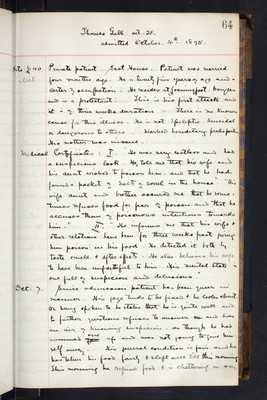 64
Thomas Gill æt. 25.
admitted October. 4th 1895.
Private patient. East House. Patient was married
four months ago. He is twenty five years of age and a
carter by occupation. He resides at
and is a protestant. This is his first attack and
it is of three weeks duration. There is no known
cause for this illness. He is not epileptic suicidal
or dangerous to others. Marked hereditary predisposition
His mother was insane.
Medical Certificates: I. He was very restless and had
a suspicious look. He told me that his wife and
his aunt wished to poison him and that he had
found a packet of salts of sorrel in the house. His
wife aunt and mother assured me that he some
times refuses food for fear of poison and that he
accuses them of poisonous intentions towards
him. II. He informs me that his wife &
other relations have been for three weeks past giving
him poison in his food. He detected it both by
taste smell & after effects. He also believes his wife
to have been unfaithful to him. His mental state
is full of suspicions and delusions.
Oct. 7. Since admission patient has been queer in
manner. His gaze tends to be fixed & he looks about
on being spoken to he states that he is quite well and
to further questions refuses to answer and has
an air of knowing suspicion as though he had
summed one up and was not going to give him
self away. His general condition is fair and he
has taken his food fairly & slept well till this morning
This morning he refused food & is chattering in an